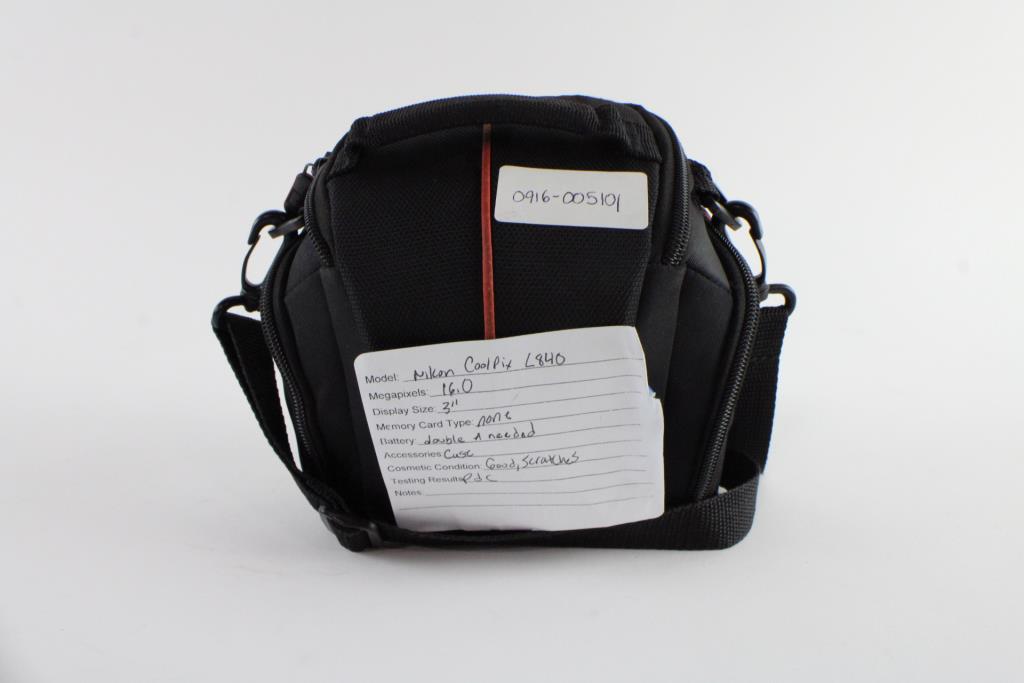 0916-005101
Model: Nikon CoolPix L840
Megapixels: 16.0
Display Size: 3"
Memory Card Type: none
Battery: double A needed
Accessories Case
Cosmetic Condition: Good, scratches
Testing Results PdC
Notes: